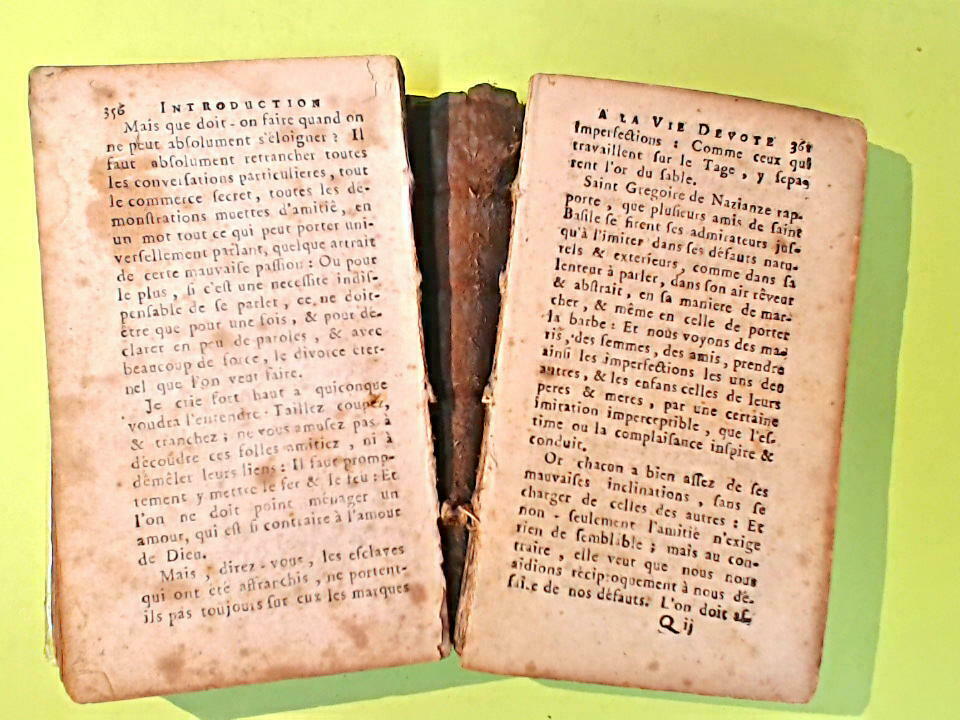 356 INTRODUCTION
Mais que doit-on faire quand on
ne peut absolument s'éloigner? Il
faut absolument retrancher toutes
les conversations particulieres, tout
le commerce secret, toutes les dé-
monſtrations muettes d'amitié, en
un mot tout ce qui peut porter uni-
verſellement parlant, quelque attrait
de cette mauvaiſe paſſion: Ou pour
le plus, ſi c'eſt une neceſſité indiſ-
penſable de ſe parler, ce ne doit-
être que pour une fois, & pour dé-
clarer en peu de paroles, & avec
beaucoup de force, le divorce éter-
nel que l'on veut faire.
Je crie fort haut à quiconque
voudra l'entendre: Taillez coupez,
& tranchez; ne vous amuſez pas à
découdre ces folles amitiez, ni à
démêler leurs liens: Il faut promp-
tement y mettre le fer & le feu: Et
l'on ne doit point ménager un
amour, qui eſt ſi contraire à l'amour
de Dieu.
Mais, direz-vous, les eſclaves
qui ont été affranchis, ne portent-
ils pas toujours ſur eux les marques
A LA VIE DEVOTE 361
Imperfections: Comme ceux qui
travaillent ſur le Tage, y ſepa
rent l'or du ſable.
Saint Gregoire de Nazianze rap-
porte, que pluſieurs amis de ſaint
Baſile ſe firent ſes admirateurs juſ-
qu'à l'imiter dans ſes défauts natu-
rels & exterieurs, comme dans ſa
lenteur à parler, dans ſon air rêveur
& abſtrait, en ſa maniere de mar-
cher, & même en celle de porter
la barbe: Et nous voyons des ma-
ris, des femmes, des amis, prendre
ainſi les imperfections les uns des
autres, & les enfans celles de leurs
peres & meres, par une certaine
imitation imperceptible, que l'eſ-
time ou la complaiſance inſpire &
conduit.
Or chacun a bien aſſez de ſes
mauvaiſes inclinations, ſans ſe
charger de celles des autres: Et
non-ſeulement l'amitié n'exige
rien de ſemblable; mais au con-
traire, elle veut que nous nous
aidions réciproquement à nous dé-
faire de nos défauts. L'on doit
Q ij